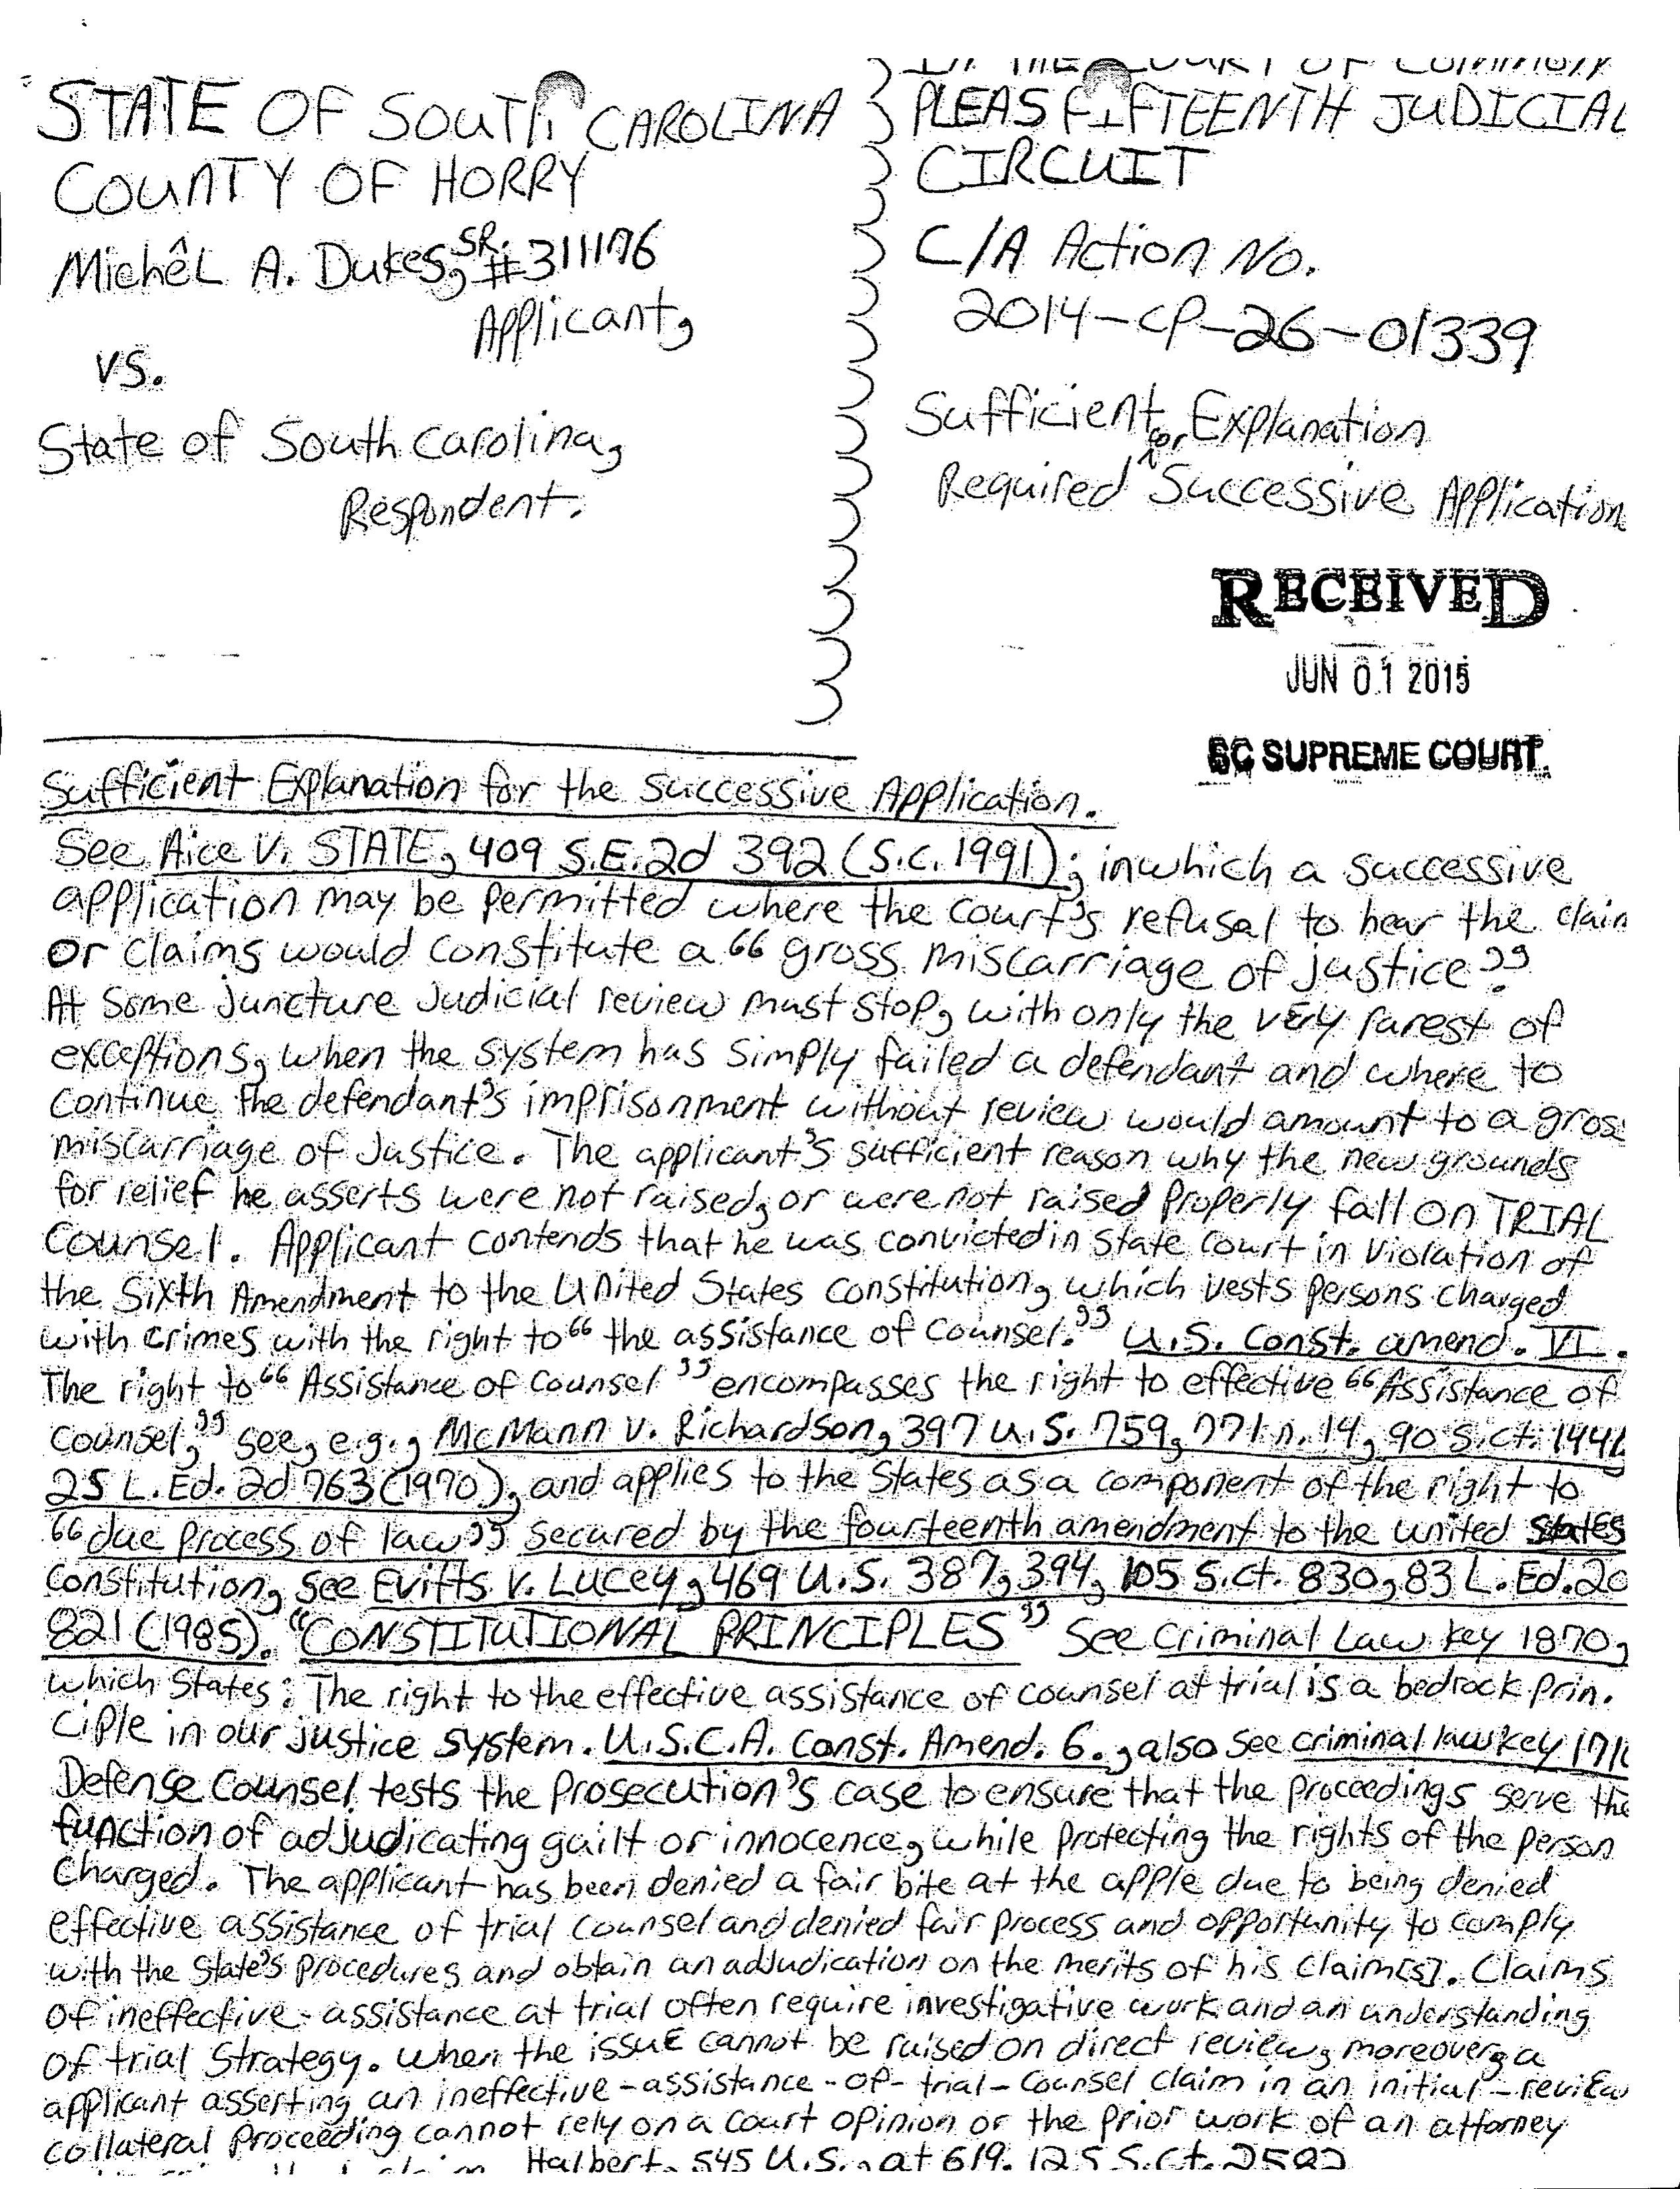 STATE OF SOUTH CAROLINA
COUNTY OF HORRY
Michêl A. Dukes, SR. #311176
Applicant,
vs.
State of South Carolina,
Respondent.
IN THE COURT OF COMMON
PLEAS FIFTEENTH JUDICIAL
CIRCUIT
C/A Action No.
2014-CP-26-01339
Sufficient Explanation
Required for Successive Application
RECEIVED
JUN 01 2015
SC SUPREME COURT
Sufficient Explanation for the Successive Application.
See Aice v. STATE, 409 S.E.2d 392 (S.C. 1991); inwhich a successive
application may be permitted where the court's refusal to hear the claim
or claims would constitute a "gross miscarriage of justice".
At some juncture judicial review must stop, with only the very rarest of
exceptions, when the system has simply failed a defendant and where to
continue the defendant's imprisonment without review would amount to a gros
miscarriage of justice. The applicant's sufficient reason why the new grounds
for relief he asserts were not raised, or were not raised properly fall on TRIAL
Counsel. Applicant contends that he was convicted in state court in violation of
the Sixth Amendment to the United States constitution, which vests persons charged
with crimes with the right to "the assistance of counsel." U.S. Const. amend. VI.
The right to "Assistance of counsel" encompasses the right to effective "Assistance of
counsel," see, e.g., McMann v. Richardson, 397 U.S. 759, 771 n. 14, 90 S.Ct. 1441
25 L.Ed.2d 763 (1970), and applies to the States as a component of the right to
"due process of law" secured by the fourteenth amendment to the united States
Constitution, see Evitts v. Lucey, 469 U.S. 387, 394, 105 S.Ct. 830, 83 L.Ed.2d
821 (1985). "CONSTITUTIONAL PRINCIPLES" See Criminal Law key 1870,
which States: The right to the effective assistance of counsel at trial is a bedrock prin.
ciple in our justice system. U.S.C.A. Const. Amend. 6., also see criminal law key 171
Defense Counsel tests the prosecution's case to ensure that the proceedings serve the
function of adjudicating guilt or innocence, while protecting the rights of the person
charged. The applicant has been denied a fair bite at the apple due to being denied
effective assistance of trial counsel and denied fair process and opportunity to comply
with the State's procedures and obtain an adjudication on the merits of his claim[s]. Claims
of ineffective-assistance at trial often require investigative work and an understanding
of trial strategy. When the issue cannot be raised on direct review, moreover, a
applicant asserting an ineffective-assistance-of-trial-counsel claim in an initial-review
collateral proceeding cannot rely on a court opinion or the prior work of an attorney
Halbert, 545 U.S., at 619. 125 S.Ct. 2582